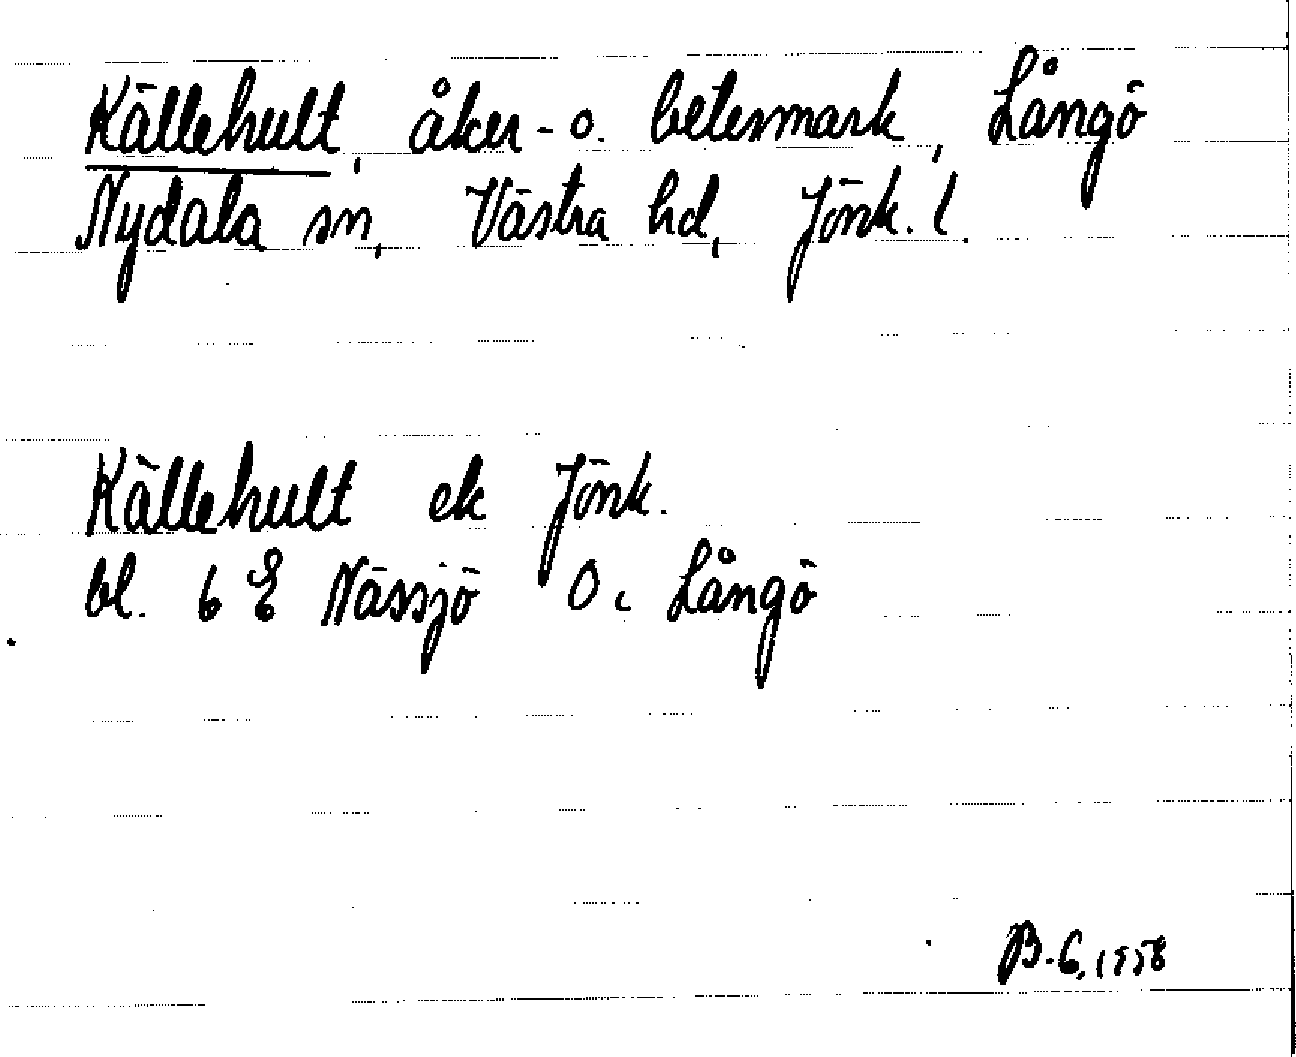 Källehult, åker- o. betesmark, Långö
Nydala sn, Västra hd, Jönk. l.
Källehult ek Jönk.
bl. 6 E Nässjö O c Långö
B. G. 1958